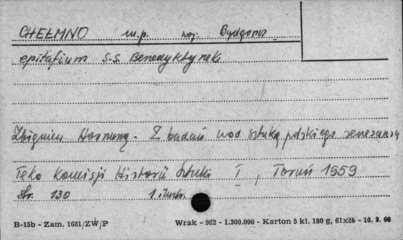 CHEŁMNO m.p. woj. Bydgoszcz
epitafium S.S. Benedyktynek
Zbigniew Hornung. Z badań nad sztuką polskiego renesansu
Teka Komisji Historii Sztuki I, Toruń 1959
Str. 130 1 ilustr.
B-15b - Zam. 1681/ZW/P Wrak - 962 - 1.300.000 - Karton 5 kl. 180 g, 61x26 - 10. 9. 60